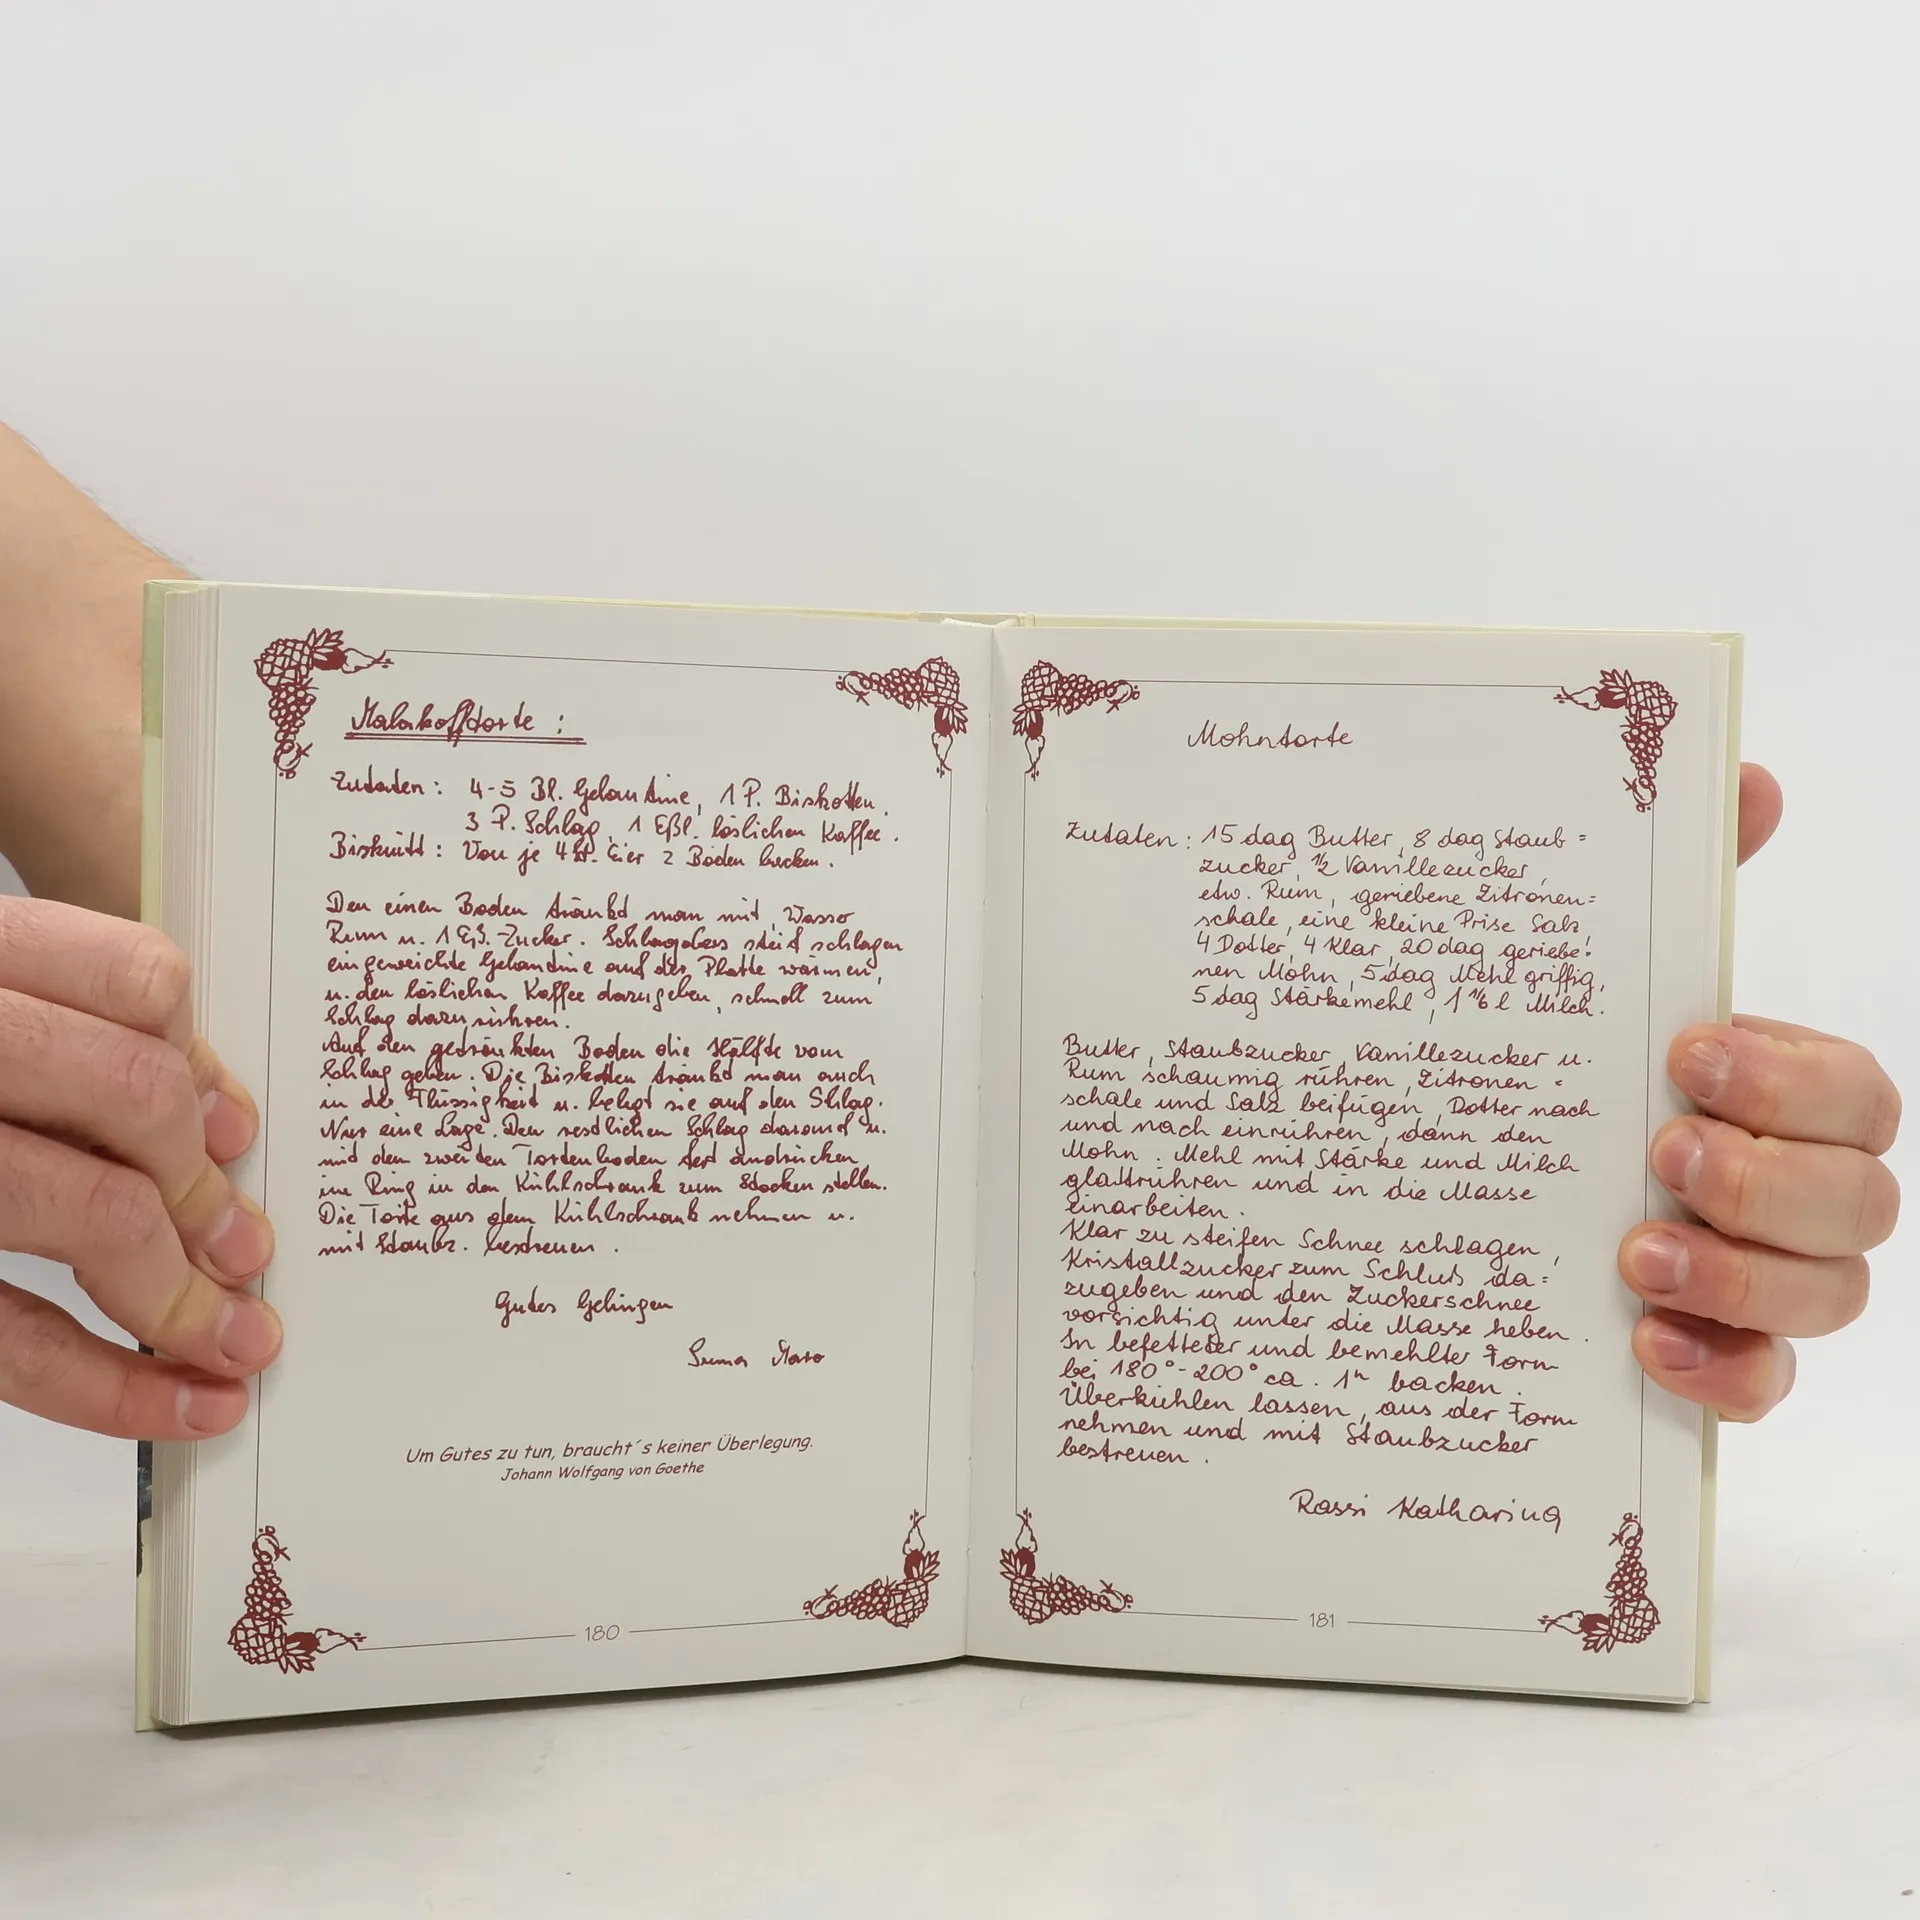 Malakofftorte :
Zutaten : 4-5 Bl. Gelantine, 1 P. Biskotten.
3 P. Schlag, 1 Eßl. löslichen Kaffee.
Biskuitt : Von je 4 Eier 2 Böden backen.
Den einen Boden tränkt man mit, Wasser
Rum u. 1 Eßl. Zucker. Schlagobers steif schlagen
eingeweichte Gelantine auf der Platte wärmen,
u. den löslichen Kaffee dazugeben, schnell zum
Schlag dazu rühren.
Auf den getränkten Boden die Hälfte vom
Schlag geben. Die Biskotten tränkt man auch
in der Flüssigkeit u. belegt sie auf den Schlag.
Nur eine Lage. Den restlichen Schlag darauf u.
mit dem zweiten Tortenboden fest andrücken
im Ring in den Kühlschrank zum Stocken stellen.
Die Torte aus dem Kühlschrank nehmen u.
mit Staubz. bestreuen .
Gutes Gelingen
Um Gutes zu tun, braucht´s keiner Überlegung.
Johann Wolfgang von Goethe
180
Mohntorte
Zutaten : 15 dag Butter, 8 dag Staub =
zucker, 1/2 Vanillezucker,
etw. Rum, geriebene Zitronen=
schale, eine kleine Prise Salz,
4 Dotter, 4 Klar, 20 dag geriebe=
nen Mohn, 5 dag Mehl griffig,
5 dag Stärkemehl, 1 1/16 l Milch.
Butter, Staubzucker, Vanillezucker u.
Rum schaumig rühren, Zitronen =
schale und Salz beifügen, Dotter nach
und nach einrühren, dann den
Mohn. Mehl mit Stärke und Milch
glattrühren und in die Masse
einarbeiten.
Klar zu steifen Schnee schlagen,
Kristallzucker zum Schluß da=
zugeben und den Zuckerschnee
vorsichtig unter die Masse heben.
In befetteter und bemehlter Form
bei 180°-200° ca. 1h backen.
Überkühlen lassen, aus der Form
nehmen und mit Staubzucker
bestreuen .
Rassi Katharina
181